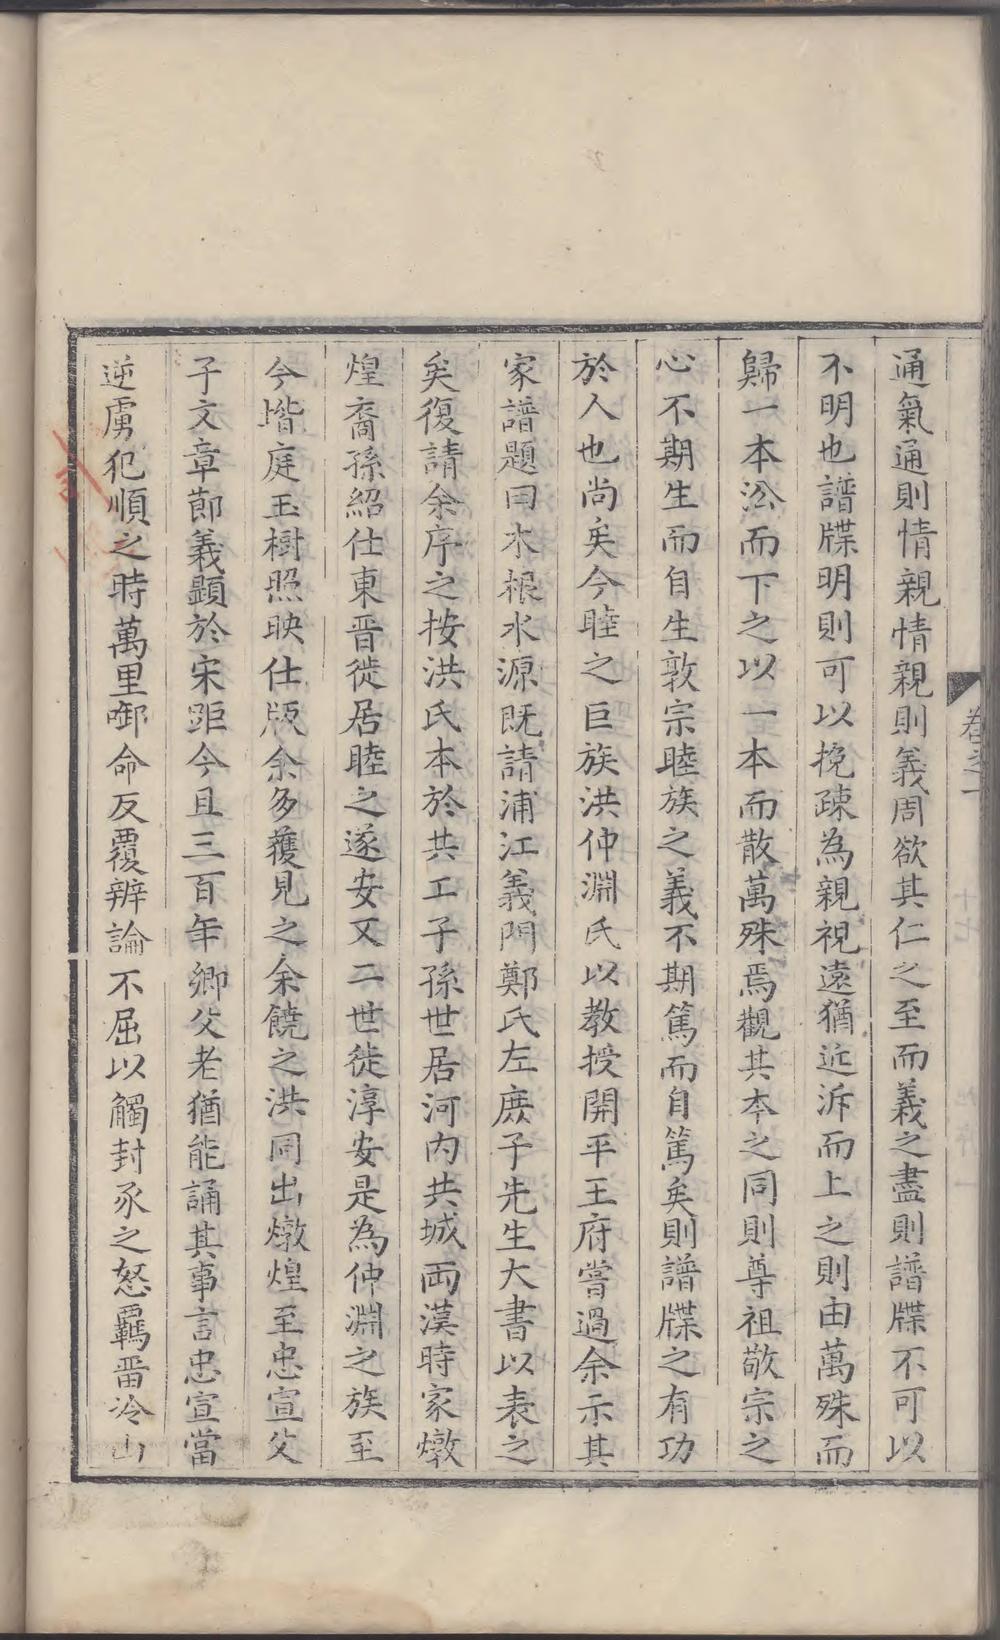 通氣通則情親情親則義周欲其仁之至而義之盡則譜牒不可以
不明也譜牒明則可以挽疎為親視遠猶近泝而上之則由萬殊而
歸一本㳂而下之以一本而散萬殊焉觀其本之同則尊祖敬宗之
心不期生而自生敦宗睦族之義不期篤而自篤矣則譜牒之有功
於人也尚矣今睦之巨族洪仲淵氏以教授開平王府嘗過余示其
家譜題曰木根水源既請浦江義門鄭氏左庶子先生大書以表之
矣復請余序之按洪氏本於共工子孫世居河內共城兩漢時家燉
煌裔孫紹仕東晉徙居睦之遂安又二世徙淳安是為仲淵之族至
今堦庭玉樹照映仕版余多獲見之余饒之洪同出燉煌至忠宣父
子文章節義顯於宋距今且三百年鄉父老猶能誦其事言忠宣當
逆虜犯順之時萬里啣命反覆辨論不屈以觸封豕之怒羈畱冷山
卷之一